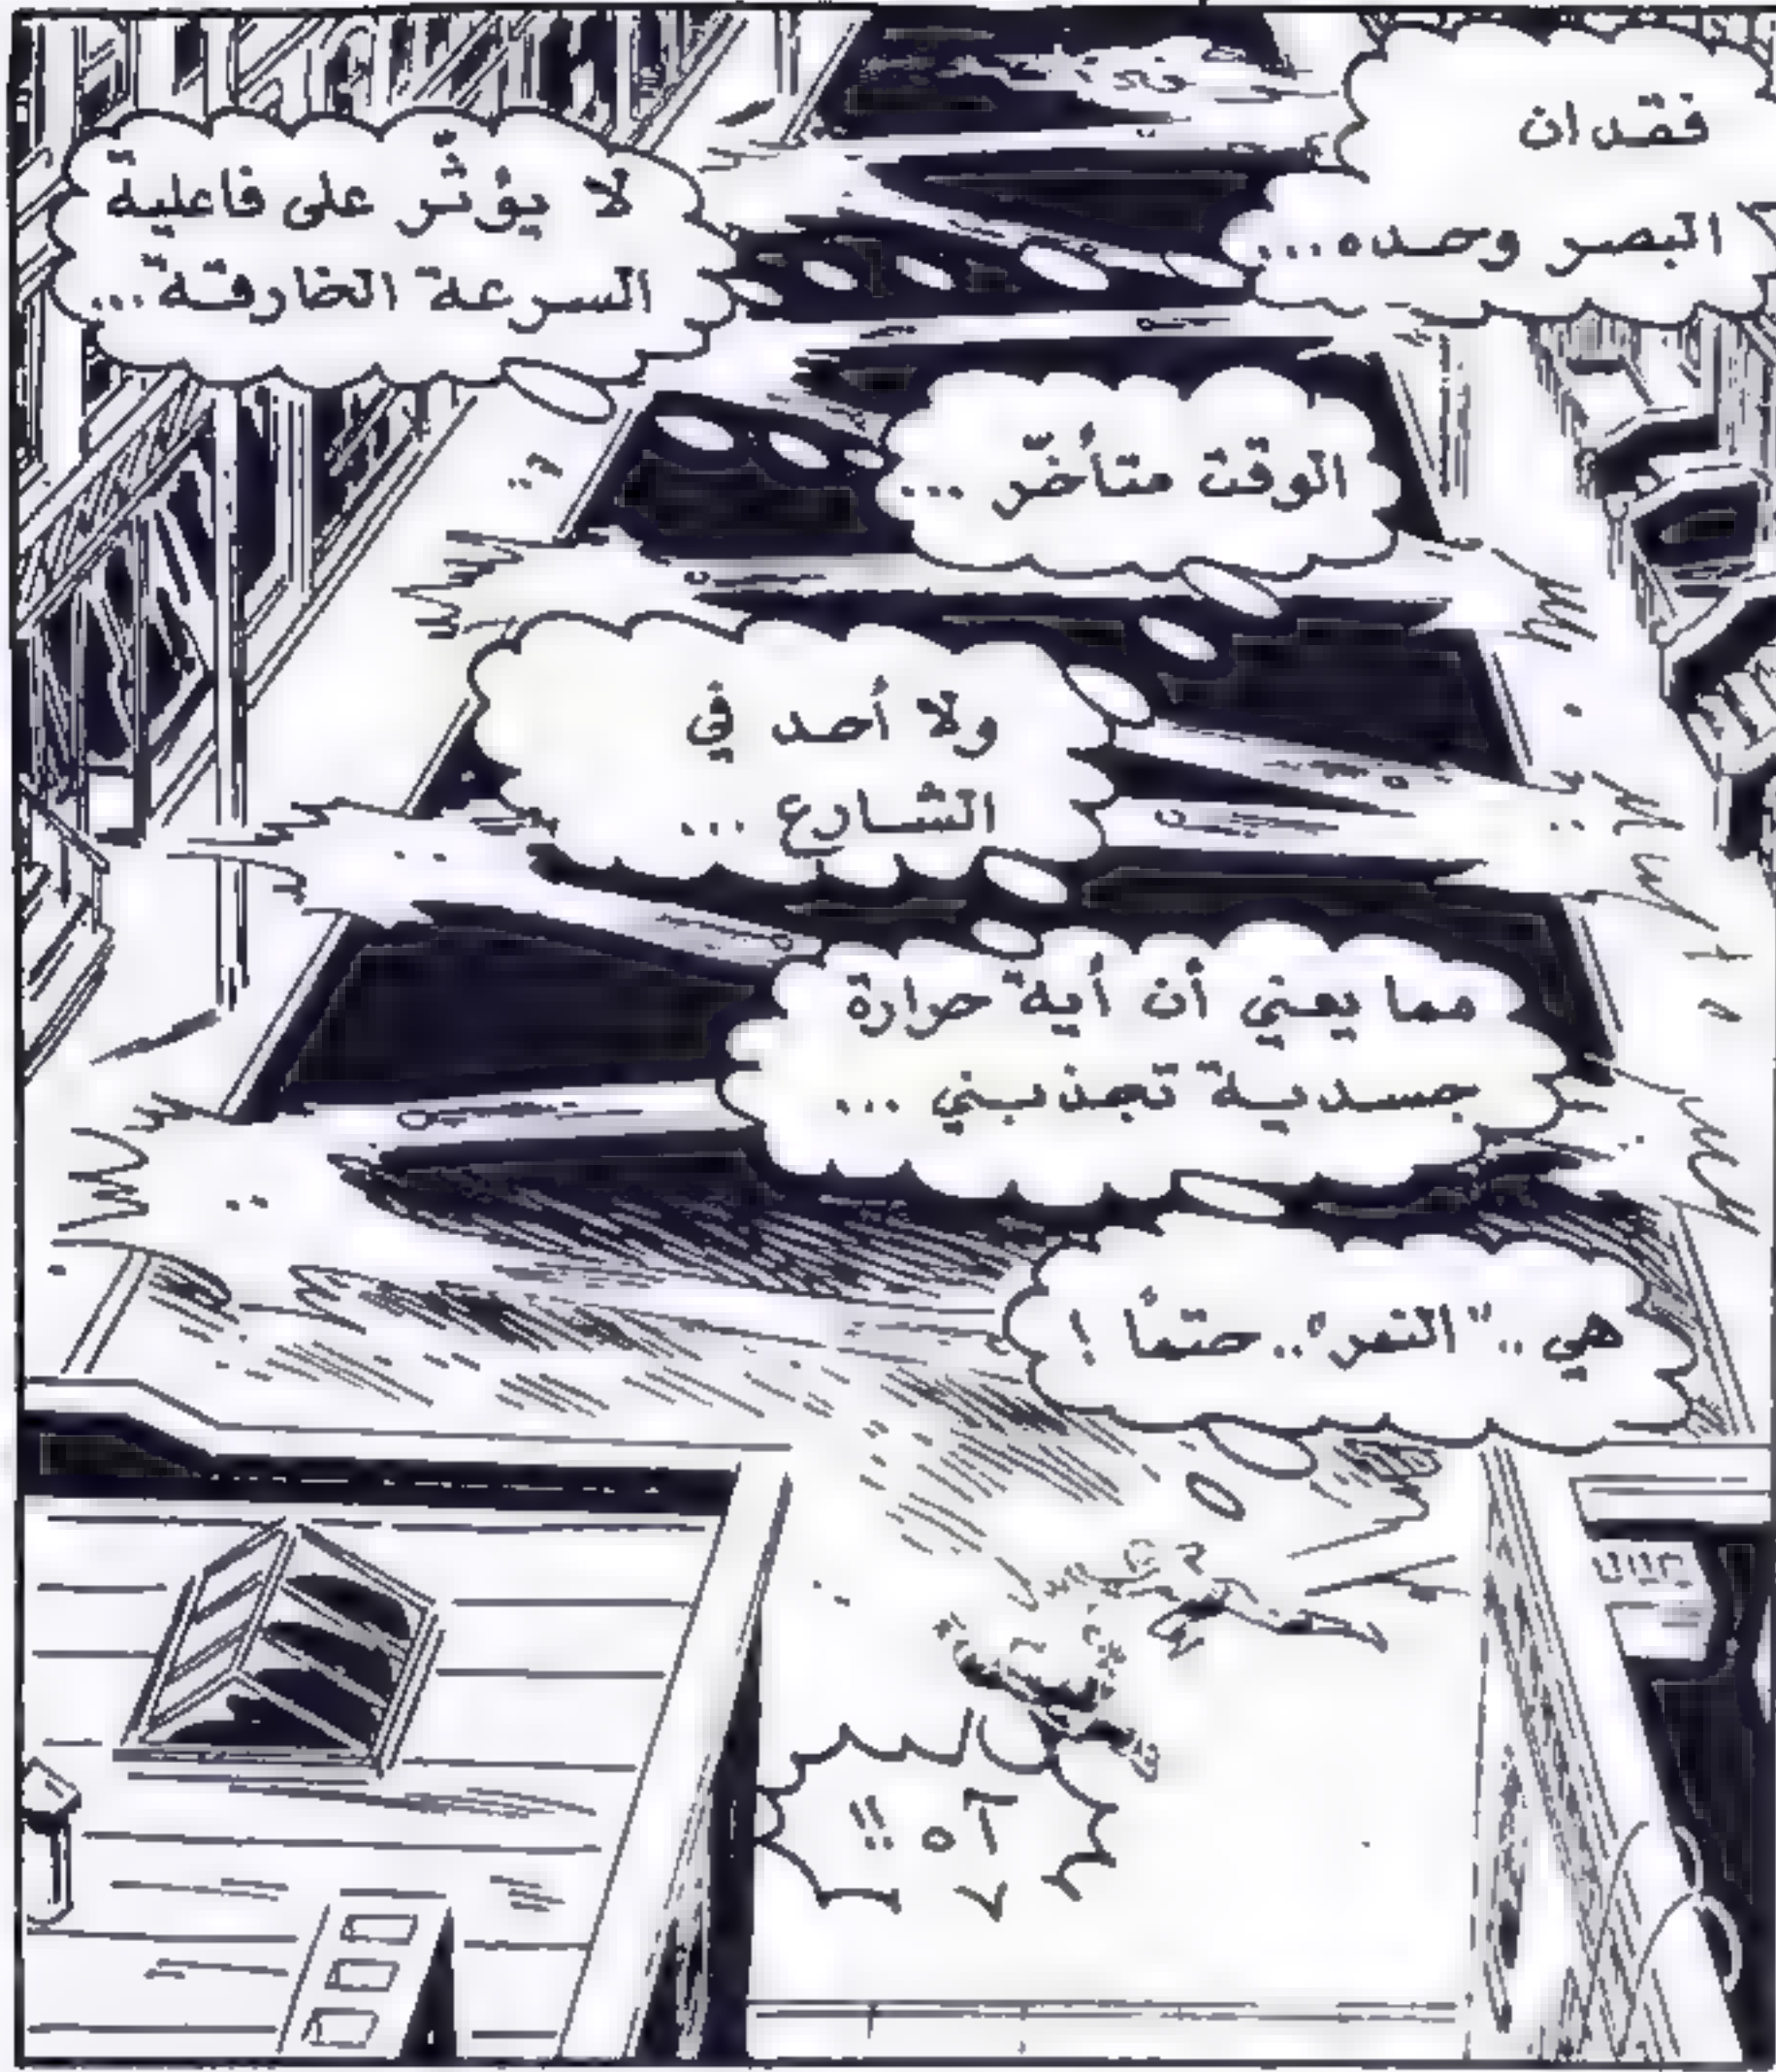 فقدان
البصر وحده...
لا يؤثّر على فاعلية
السرعة الخارقة...
الوقت متأخّر ...
ولا أحد في
الشارع ...
مما يعني أن أية حرارة
جسدية تجذبني ...
هي .. "النمر".. حتمًا !
آه !!